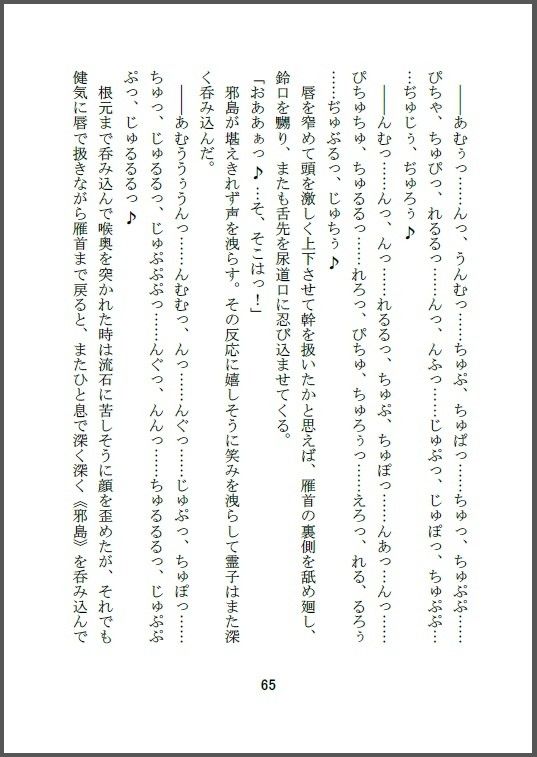 ――あむぅっ……んっ、うんむっ……ちゅぷ、ちゅぱっ……ちゅっ、ちゅぷぷ……
ぴちゃ、ちゅぴっ、れるるっ……んっ、んふっ……じゅぷっ、じゅぽっ、ちゅぷぷ…
…ぢゅじぅ、ぢゅろぅ♪
――んむっ……んっ、んっ……れるるっ、ちゅぷ、ちゅぽっ……んあっ…んっ……
ぴちゅちゅ、ちゅるるっ……れろっ、ぴちゅ、ちゅろぅっ……えろっ、れる、るろぅ
……ぢゅぶるっ、じゅちぅ♪
唇を窄めて頭を激しく上下させて幹を扱いたかと思えば、雁首の裏側を舐め廻し、
鈴口を嬲り、またも舌先を尿道口に忍び込ませてくる。
「おああぁっ♪…そ、そこはっ！」
邪島が堪えきれず声を洩らす。その反応に嬉しそうに笑みを洩らして霊子はまた深
く呑み込んだ。
――あむううぅうんっ……んむむっ、んっ……んぐっ……じゅぷっ、ちゅぽっ……
ちゅっ、じゅるるっ、じゅぷぷぷっ……んぐっ、んんっ……ちゅるるるっ、じゅぷぷ
ぷっ、じゅるるるっ♪
根元まで呑み込んで喉奥を突かれた時は流石に苦しそうに顔を歪めたが、それでも
健気に唇で扱きながら雁首まで戻ると、またひと息で深く深く《邪島》を呑み込んで
65